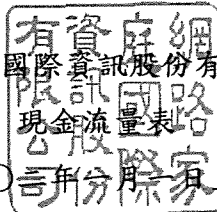 國際資訊股份有
現金流量表
二年一月一日
網路家
庭國際
資訊股份
有限公司